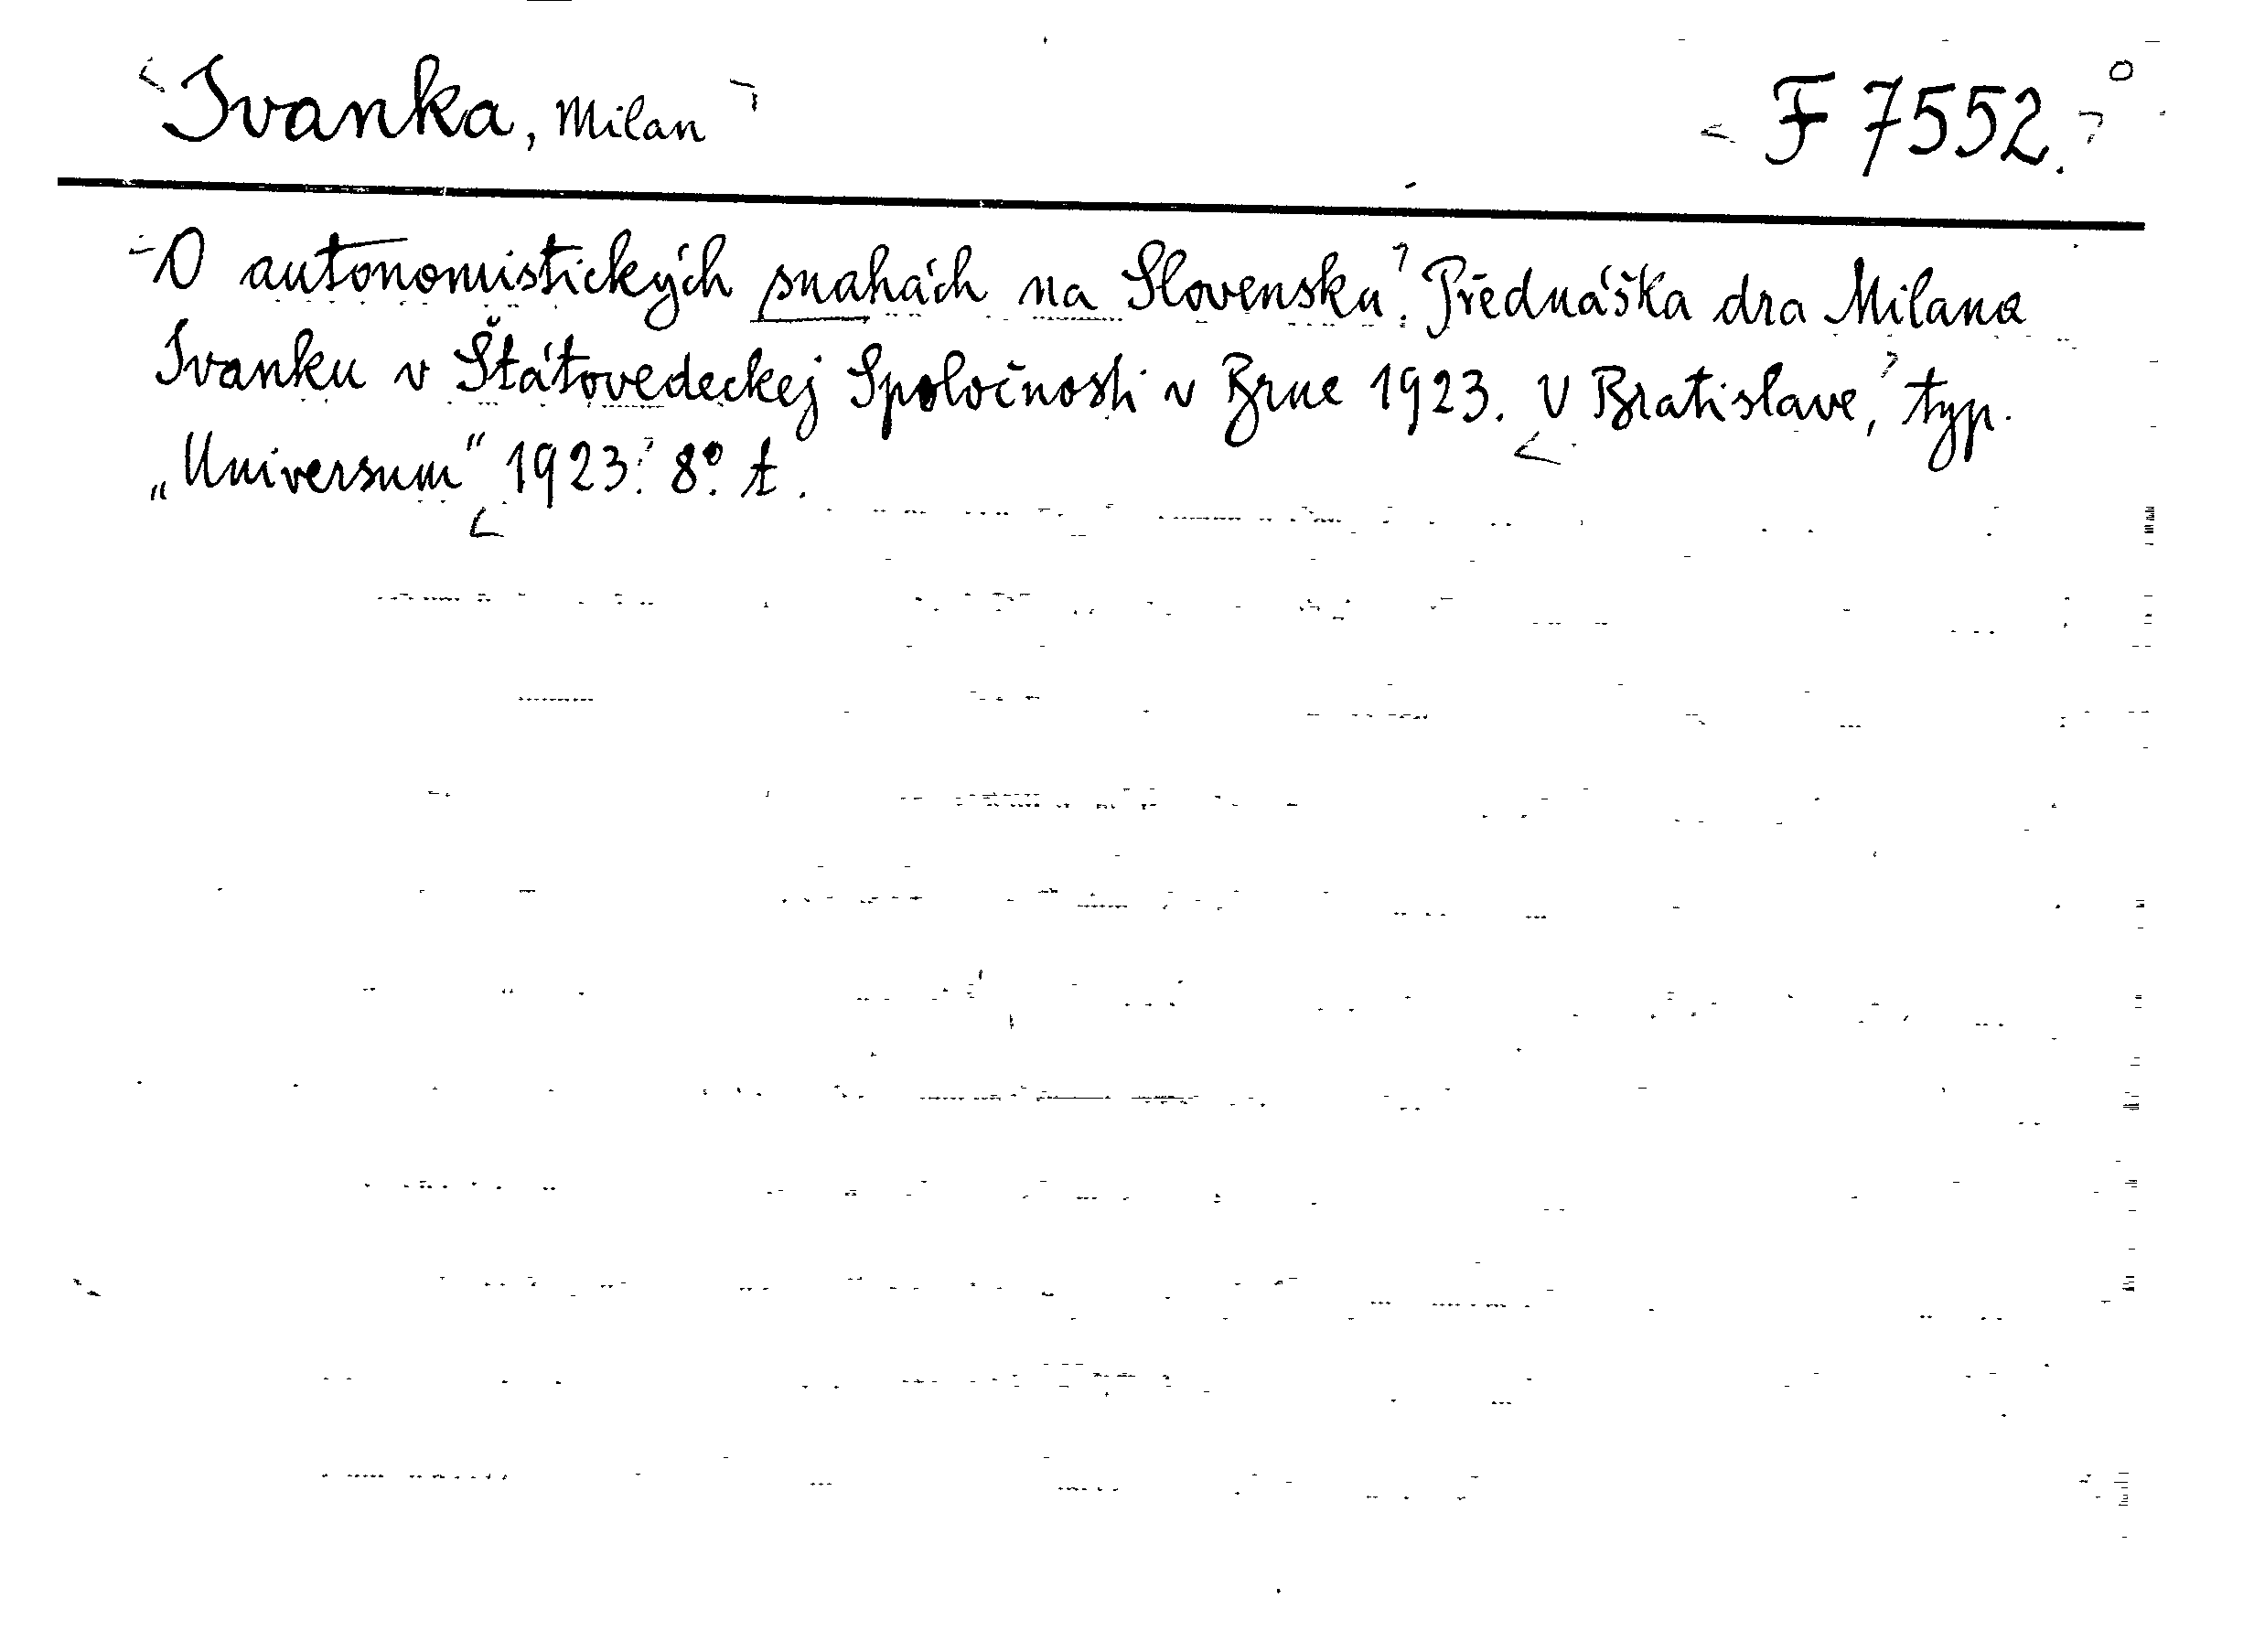 Ivanka, Milan F 7552.
O autonomistických snahách na Slovensku. Přednáška dra Milana
Ivanku v Štátovedeckej Spoločnosti v Brne 1923. V Bratislave, typ.
„Universum“ 1923. 8°. t.